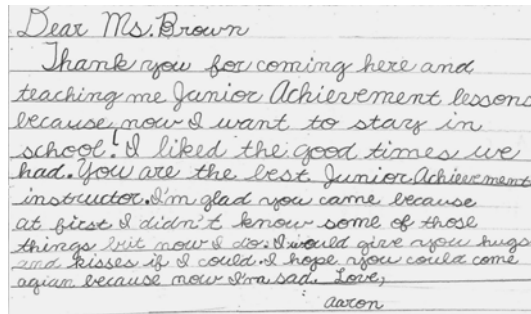 Dear Ms. Brown
Thank you for coming here and
teaching me Junior Achievement lessons
because now I want to stay in
school! I liked the good times we
had. You are the best Junior Achievement
instructor. I'm glad you came because
at first I didn't know some of those
things but now I do. I would give you hugs
and kisses if I could. I hope you could come
agian because now I'm sad. Love,
aaron